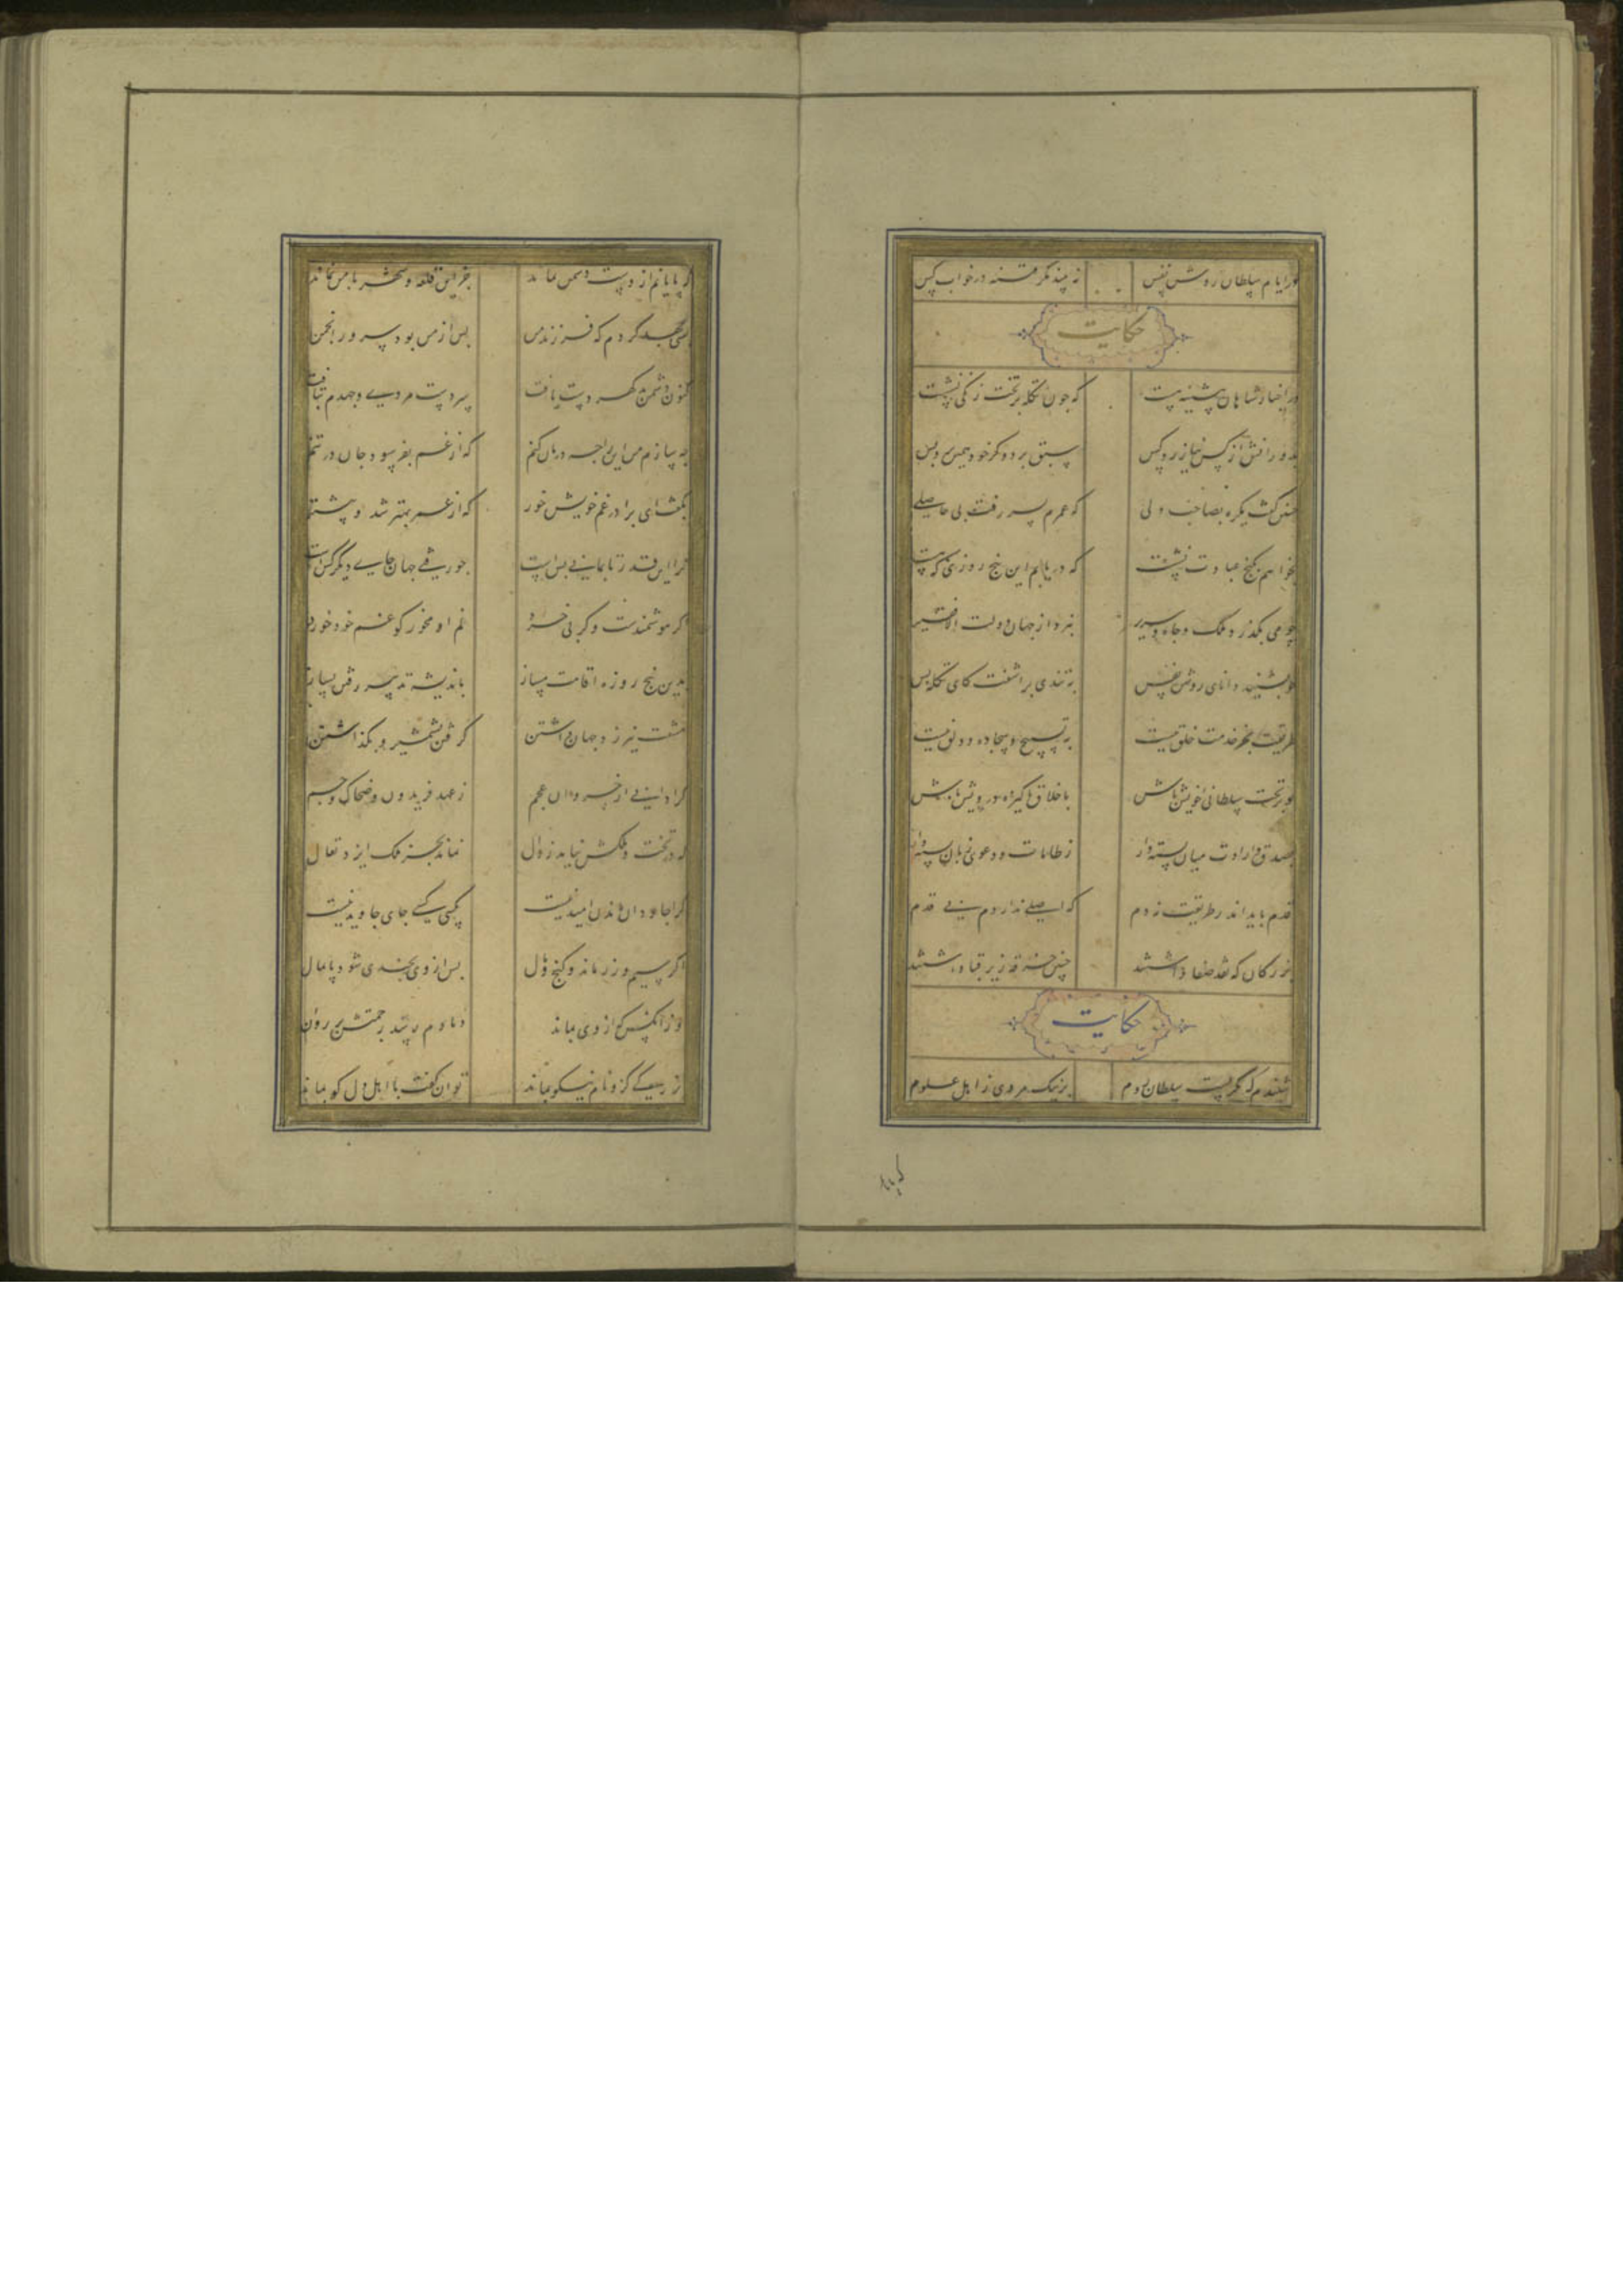 در ایام سلطان روشن نفس نه بیند مگر فتنه در خواب کس
حکایت
در اخبار شاهان پیشینه هست که چون تکله بر تخت زنگی نشست
بدورانش از کس نیازرد کس سبق برد و گر خود همین بود و بس
چنین گفت یکره بصاحب دلی که عمرم بسر رفت بی حاصلی
بخواهم بکنج عبادت نشست که دریابم این پنج روزی که هست
چو می بگذرد ملک و جاه و سریر نبرد از جهان دولت الا فقیر
چو بشنید دانای روشن نفس به تندی برآشفت کای تکله بس
طریقت بجز خدمت خلق نیست به تسبیح و سجاده و دلق نیست
تو بر تخت سلطانی خویش باش باخلاق پاکیزه درویش باش
بصدق و ارادت میان بسته دار ز طامات و دعوی زبان بسته دار
قدم باید اندر طریقت نه دم که اصلی ندارد دم بی قدم
بزرگان که نقد صفا داشتند چنین خرقه زیر قبا داشتند
حکایت
شنیدم که بگریست سلطان روم بر نیک مردی ز اهل علوم
که پایانم از دست دشمن نماند جز این قلعه و شهر با من نماند
بسی جهد کردم که فرزند من پس از من بود سرور انجمن
کنون دشمن بدگهر دست یافت سر دست مردی و جهدم بتافت
چه سازم من این را چه درمان کنم که از غم بفرسود جان در تنم
بگفت ای برادر غم خویش خور که از عمر بهتر شد و بیشتر
ترا این قدر تا بمانی بس است چو رفتی جهان جای دیگر کس است
اگر هوشمندست و گر بی خرد غم او مخور کو غم خود خورد
بدین پنج روزه اقامت مناز باندیشه تدبیر رفتن بساز
مشقت نیرزد جهان داشتن گرفتن بشمشیر و بگذاشتن
کرا دانی از خسروان عجم ز عهد فریدون و ضحاک و جم
که در تخت و ملکش نیامد زوال نماند بجز ملک ایزد تعال
کرا جاودان ماندن امید نیست کسی جای جاوید نیست
اگر سیم و زر ماند و گنج و مال پس از وی بچندی شود پایمال
وز آنکس که از وی بماند دمادم رسد رحمتش بر روان
توان گفت با اهل دل کو بماند